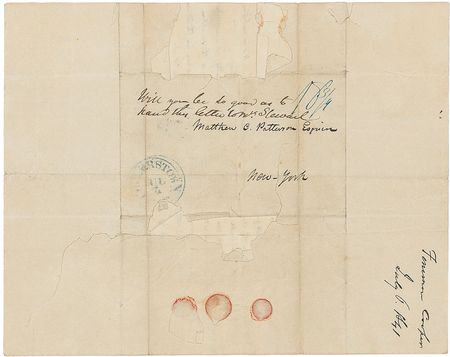 Will you be so good as to
hand this letter to Mr Steward
Matthew C. Patterson Esquire
New-York
18 3/4
ERSTOWN
JUL
Cooper
July 8. 1841